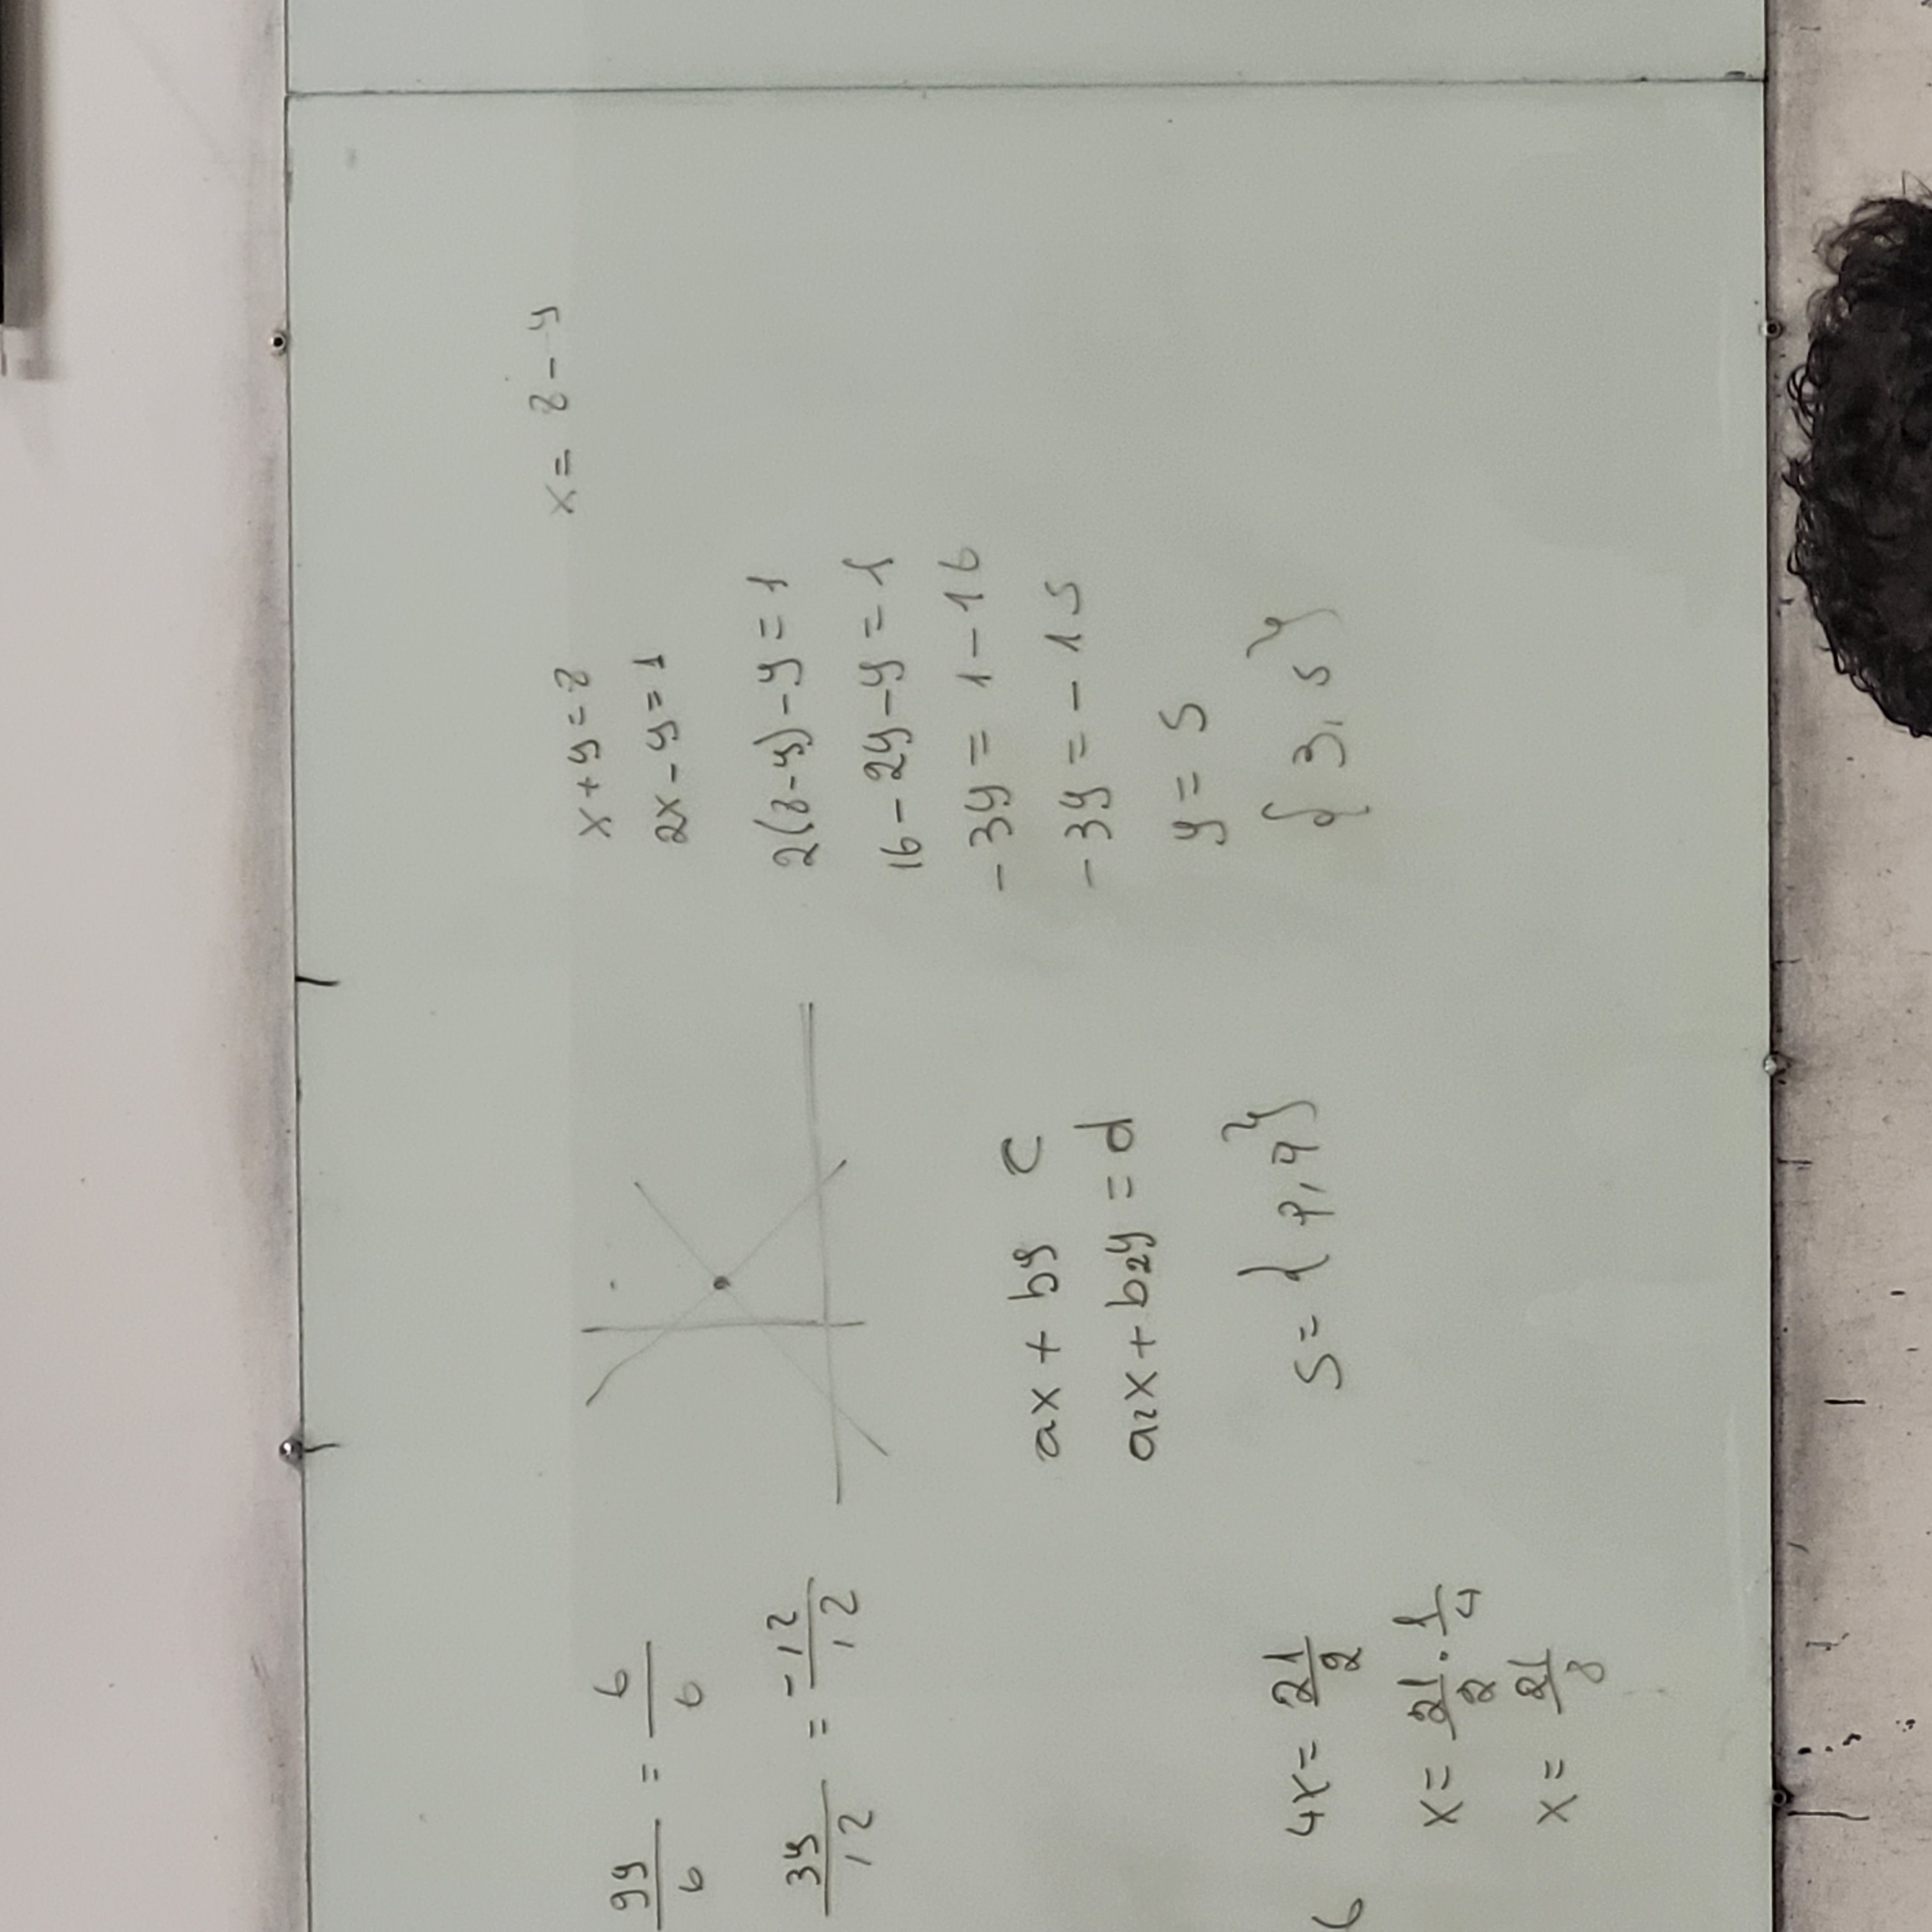 9y/6 = 6/6
3y/12 = -12/12
6
4x = 21/2
x = 21/2 · 1/4
x = 21/8
ax + by c
a₂x + b₂y = d
S = { P, q }
x + y = 8
x = 8 - y
2x - y = 1
2(8-y) - y = 1
16 - 2y - y = 1
-3y = 1 - 16
-3y = -15
y = 5
{ 3, 5 }